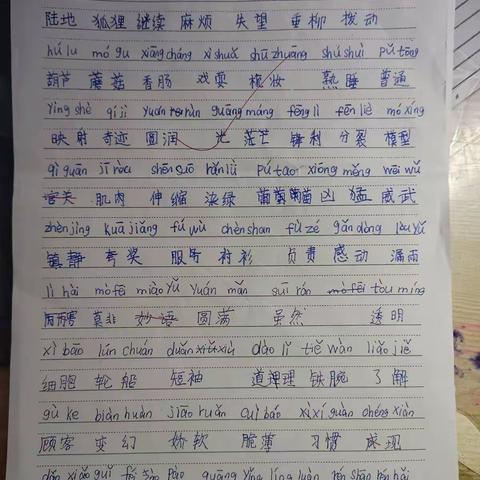 陆地 狐狸 继续 麻烦 失望 垂柳 拨动
hú lu mó gu xiāng cháng xì shuǎ shū zhuāng shú shuì pǔ tōng
葫芦 蘑菇 香肠 戏耍 梳妆 熟睡 普通
yìng shè qí jì yuán rùn guāng máng fēng lì fēn liè mó xíng
映射 奇迹 圆润 光茫芒 锋利 分裂 模型
qì guān jī ròu shēn suō rǎn lǜ pú tao xiōng měng wēi wǔ
官关 肌肉 伸缩 染绿 葡萄 凶猛 威武
zhèn jìng kuā jiǎng fú wù chèn shān fù zé gǎn dòng lòu yǔ
镇静 夸奖 服务 衬衫 负责 感动 漏雨
lì hài mò fēi miào yǔ yuán mǎn suī rán mò fēi tòu míng
厉害 莫非 妙语 圆满 虽然 透明
xì bāo lún chuán duǎn xiù dào lǐ tiě wàn liǎo jiě
细胞 轮船 短袖 道理 铁腕 了解
gù kè biàn huàn jiāo ruǎn cuì báo xí guàn chéng xiàn
顾客 变幻 娇软 脆薄 习惯 成现